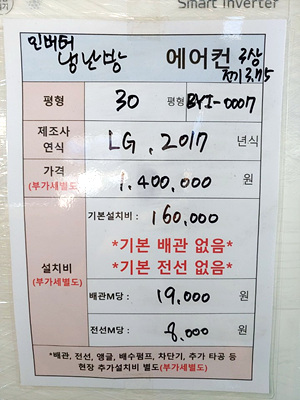 Smart Inverter
인버터
냉난방 에어컨 3상
전기 3,715
평형 30 평형 BYI-0007
제조사 LG, 2017 년식
연식
가격 1,400,000 원
(부가세별도)
기본설치비: 160,000
*기본 배관 없음*
*기본 전선 없음*
설치비
(부가세별도)
배관M당: 19,000 원
전선M당: 8,000 원
*배관, 전선, 앵글, 배수펌프, 차단기, 추가 타공 등
현장 추가설치비 별도(부가세별도)